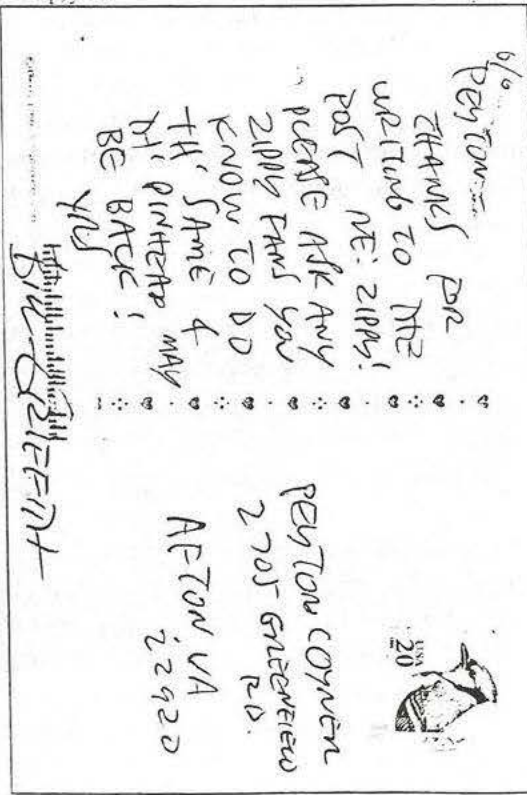 6/6
PEYTON —
THANKS FOR
WRITING TO THE
POST RE: ZIPPY!
PLEASE ASK ANY
ZIPPY FANS YOU
KNOW TO DO
TH' SAME &
TH' PINHEAD MAY
BE BACK!
YRS
BILL GRIFFITH
USA
20
PEYTON COYNER
2705 GREENFIELD
RD.
AFTON VA
22920